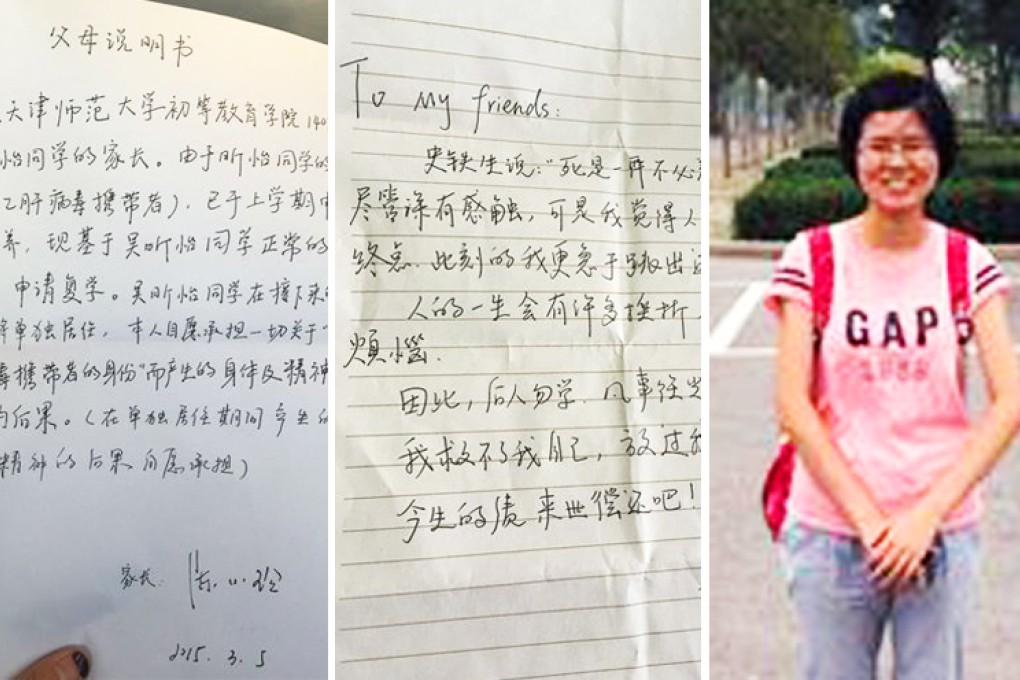 父母说明书
天津师范大学初等教育学院140
怡同学的家长。由于昕怡同学的
乙肝病毒携带者),已于上学期中
养,现基于吴昕怡同学正常的
申请复学。吴昕怡同学在接下来的
单独居住,本人自愿承担一切关于"
毒携带者的身份"而产生的身体及精神
的后果。(在单独居住期间产生的
精神的后果自愿承担)
家长:
2015.3.5
To My friends:
史铁生说:"死是一件不必
尽管深有感触,可是我觉得人
终点.此刻的我更急于
人的一生会有许多挫折
煩惱.
因此,后人勿学.凡事往
我救不了我自己,放过我
今生的债来世偿还吧!
GAP